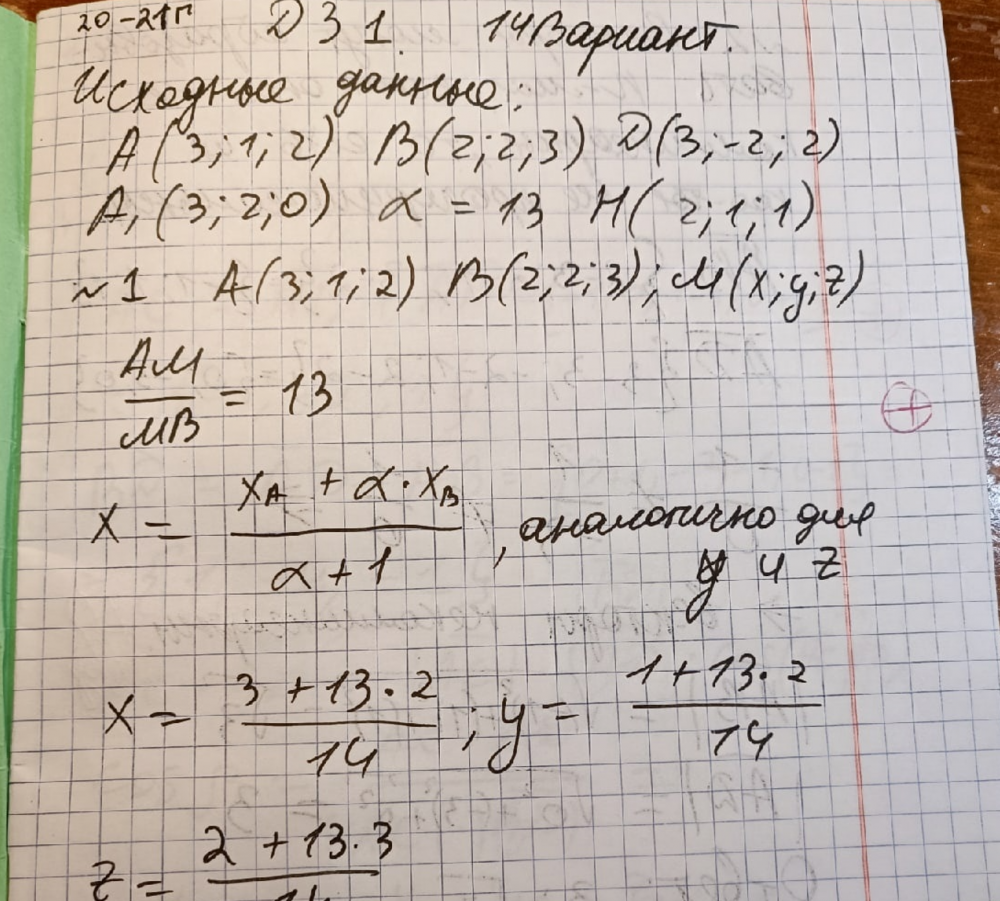 20-21г
ДЗ 1. 14 Вариант.
Исходные данные:
A(3;1;2) B(2;2;3) Д(3;-2;2)
A₁(3;2;0) α = 13 H(2;1;1)
~1 A(3;1;2) B(2;2;3); M(x;y;z)
AM/MB = 13
x = (x_A + α·x_B)/(α+1), аналогично для
y и z
x = (3+13·2)/14; y = (1+13·2)/14
z = (2+13·3)/14